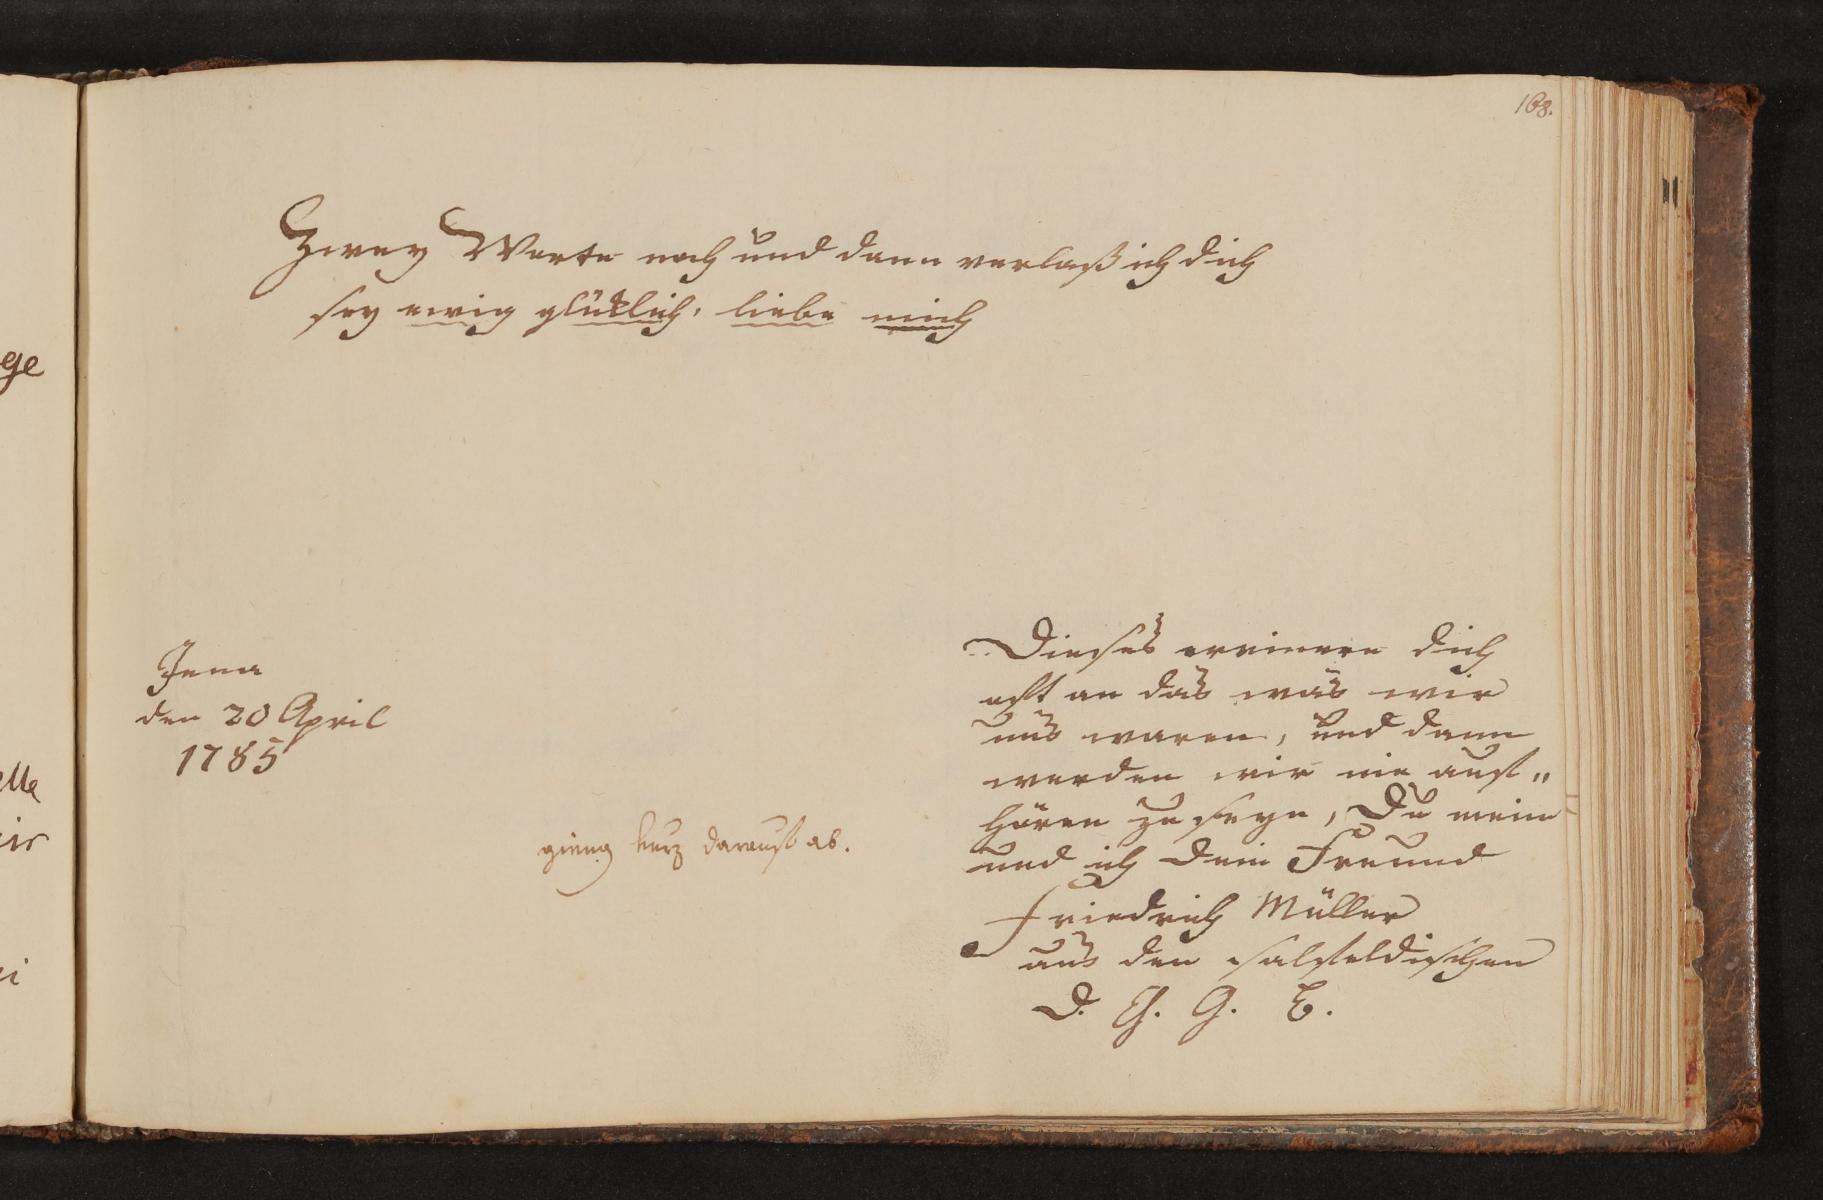 168.
Zwey Worte noch und dann verlaß ich dich
sey ewig glüklich, liebe mich
Jena
den 20 April
1785
gieng kurz darauf ab.
Dieses erinnere dich
oft an das was wir
uns waren, und dann
werden wir nie auf„
hören zu seyn, Du mein
und ich Dein Freund
Friedrich Müller
aus den salfeldischen
D. G. G. B.
ge
elle
ir
i